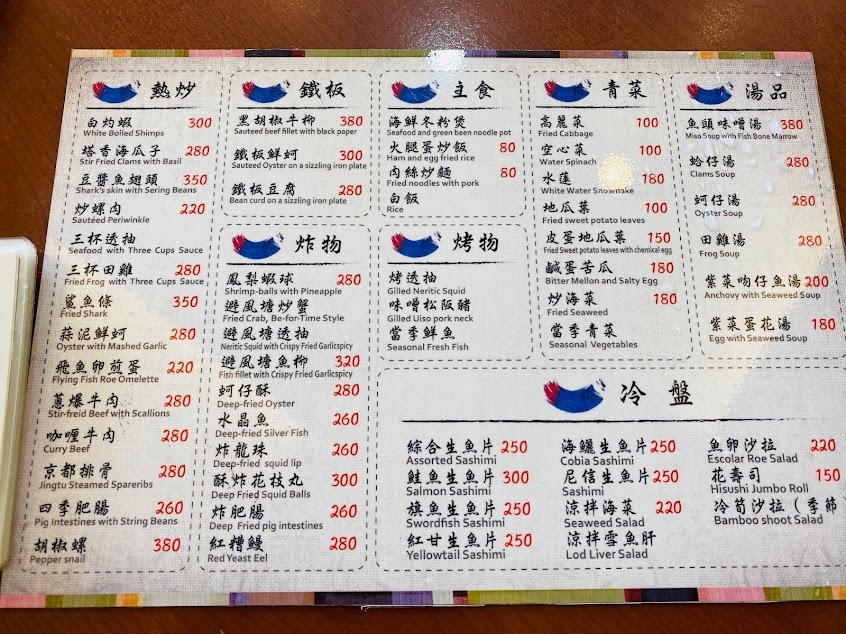 熱炒
白灼蝦 300
White Boiled Shimps
塔香海瓜子 280
Stir Fried Clams with Basil
豆醬魚翅頭 350
Shark's skin with Sering Beans
炒螺肉 220
Sautéed Periwinkle
三杯透抽
Seafood with Three Cups Sauce
三杯田雞 280
Fried Frog with Three Cups Sauce
鯊魚條 350
Fried Shark
蒜泥鮮蚵 280
Oyster with Mashed Garlic
飛魚卵煎蛋 220
Flying Fish Roe Omelette
蔥爆牛肉 280
Stir-freid Beef with Scallions
咖喱牛肉 280
Curry Beef
京都排骨 280
Jingtu Steamed Spareribs
四季肥腸 260
Pig Intestines with String Beans
胡椒螺 380
Pepper snail
鐵板
黑胡椒牛柳 380
Sauteed beef fillet with black paper
鐵板鮮蚵 300
Sauteed Oyster on a sizzling iron plate
鐵板豆腐 280
Bean curd on a sizzling iron plate
炸物
鳳梨蝦球 280
Shrimp-balls with Pineapple
避風塘炒蟹
Fried Crab, Be-for-Time Style
避風塘透抽
Neritic Squid with Crispy Fried Garlicspicy
避風塘魚柳 320
Fish fillet with Crispy Fried Garlicspicy
蚵仔酥 280
Deep-fried Oyster
水晶魚 260
Deep-fried Silver Fish
炸龍珠 260
Deep-fried squid lip
酥炸花枝丸 300
Deep Fried Squid Balls
炸肥腸 260
Deep Fried pig intestines
紅糟鰻 280
Red Yeast Eel
主食
海鮮冬粉煲
Seafood and green been noodle pot
火腿蛋炒飯 80
Ham and egg fried rice
肉絲炒麵 80
Fried noodles with pork
白飯
Rice
烤物
烤透抽
Gilled Neritic Squid
味噌松阪豬
Gilled Uiso pork neck
當季鮮魚
Seasonal Fresh Fish
青菜
高麗菜 100
Fried Cabbage
空心菜 100
Water Spinach
水蓮 180
White Water Snowflake
地瓜菜 100
Fried sweet potato leaves
皮蛋地瓜菜 150
Fried Sweet potato leaves with chemical egg
鹹蛋苦瓜 180
Bitter Mellon and Salty Egg
炒海菜 180
Fried Seaweed
當季青菜
Seasonal Vegetables
湯品
魚頭味噌湯 380
Miso Soup with Fish Bone Marrow
蛤仔湯 280
Clams Soup
蚵仔湯 280
Oyster Soup
田雞湯 280
Frog Soup
紫菜吻仔魚湯 200
Anchovy with Seaweed Soup
紫菜蛋花湯 180
Egg with Seaweed Soup
冷盤
綜合生魚片 250
Assorted Sashimi
鮭魚生魚片 300
Salmon Sashimi
旗魚生魚片 250
Swordfish Sashimi
紅甘生魚片 250
Yellowtail Sashimi
海鱺生魚片 250
Cobia Sashimi
尼信生魚片 250
Sashimi
涼拌海菜 220
Seaweed Salad
涼拌雪魚肝
Lod Liver Salad
魚卵沙拉 220
Escolar Roe Salad
花壽司 150
Hisushi Jumbo Roll
冷筍沙拉（季節
Bamboo shoot Salad